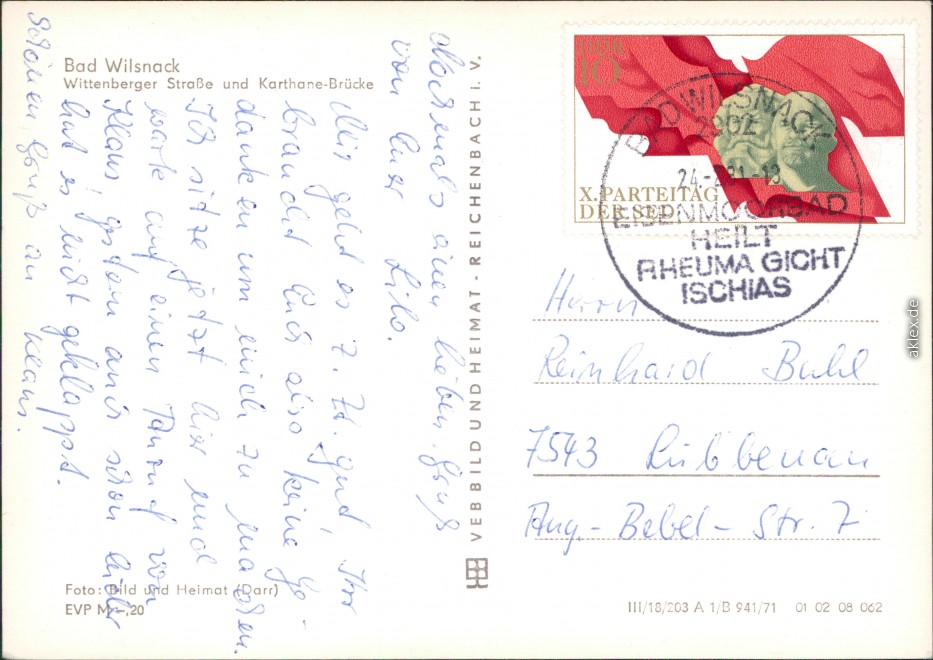 Bad Wilsnack
Wittenberger Straße und Karthane-Brücke
Nochmals einen lieben Gruß
von Eurer Lilo.
Mir geht es z. Zt. gut, Ihr
braucht Euch also keine Ge-
danken um mich zu machen.
Ich sitze jetzt hier und
warte auf einen Anruf von
Klaus, gestern aus schon leider
hat es nicht geklappt.
Schönen Gruß an Klaus.
Foto: Bild und Heimat (Darr)
EVP M –,20
VEB BILD UND HEIMAT · REICHENBACH i. V.
DDR
10
X. PARTEITAG
DER SED
BAD WILSNACK
2902
24-2.81-18
EISENMOORBAD
HEILT
RHEUMA GICHT
ISCHIAS
Herrn
Reinhard
7543 Lübbenau
Aug.-Bebel-Str. 7
III/18/203 A 1/B 941/71 01 02 08 062
aklex.de